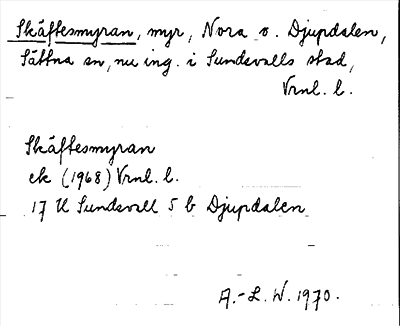 Skäftesmyran, myr, Nora o. Djupdalen,
Sättna sn, nu ing. i Sundsvalls stad,
Vrnl. l.
Skäftesmyran
ek (1968) Vrnl. l.
17 H Sundsvall 5 b Djupdalen
A.-L. W. 1970.